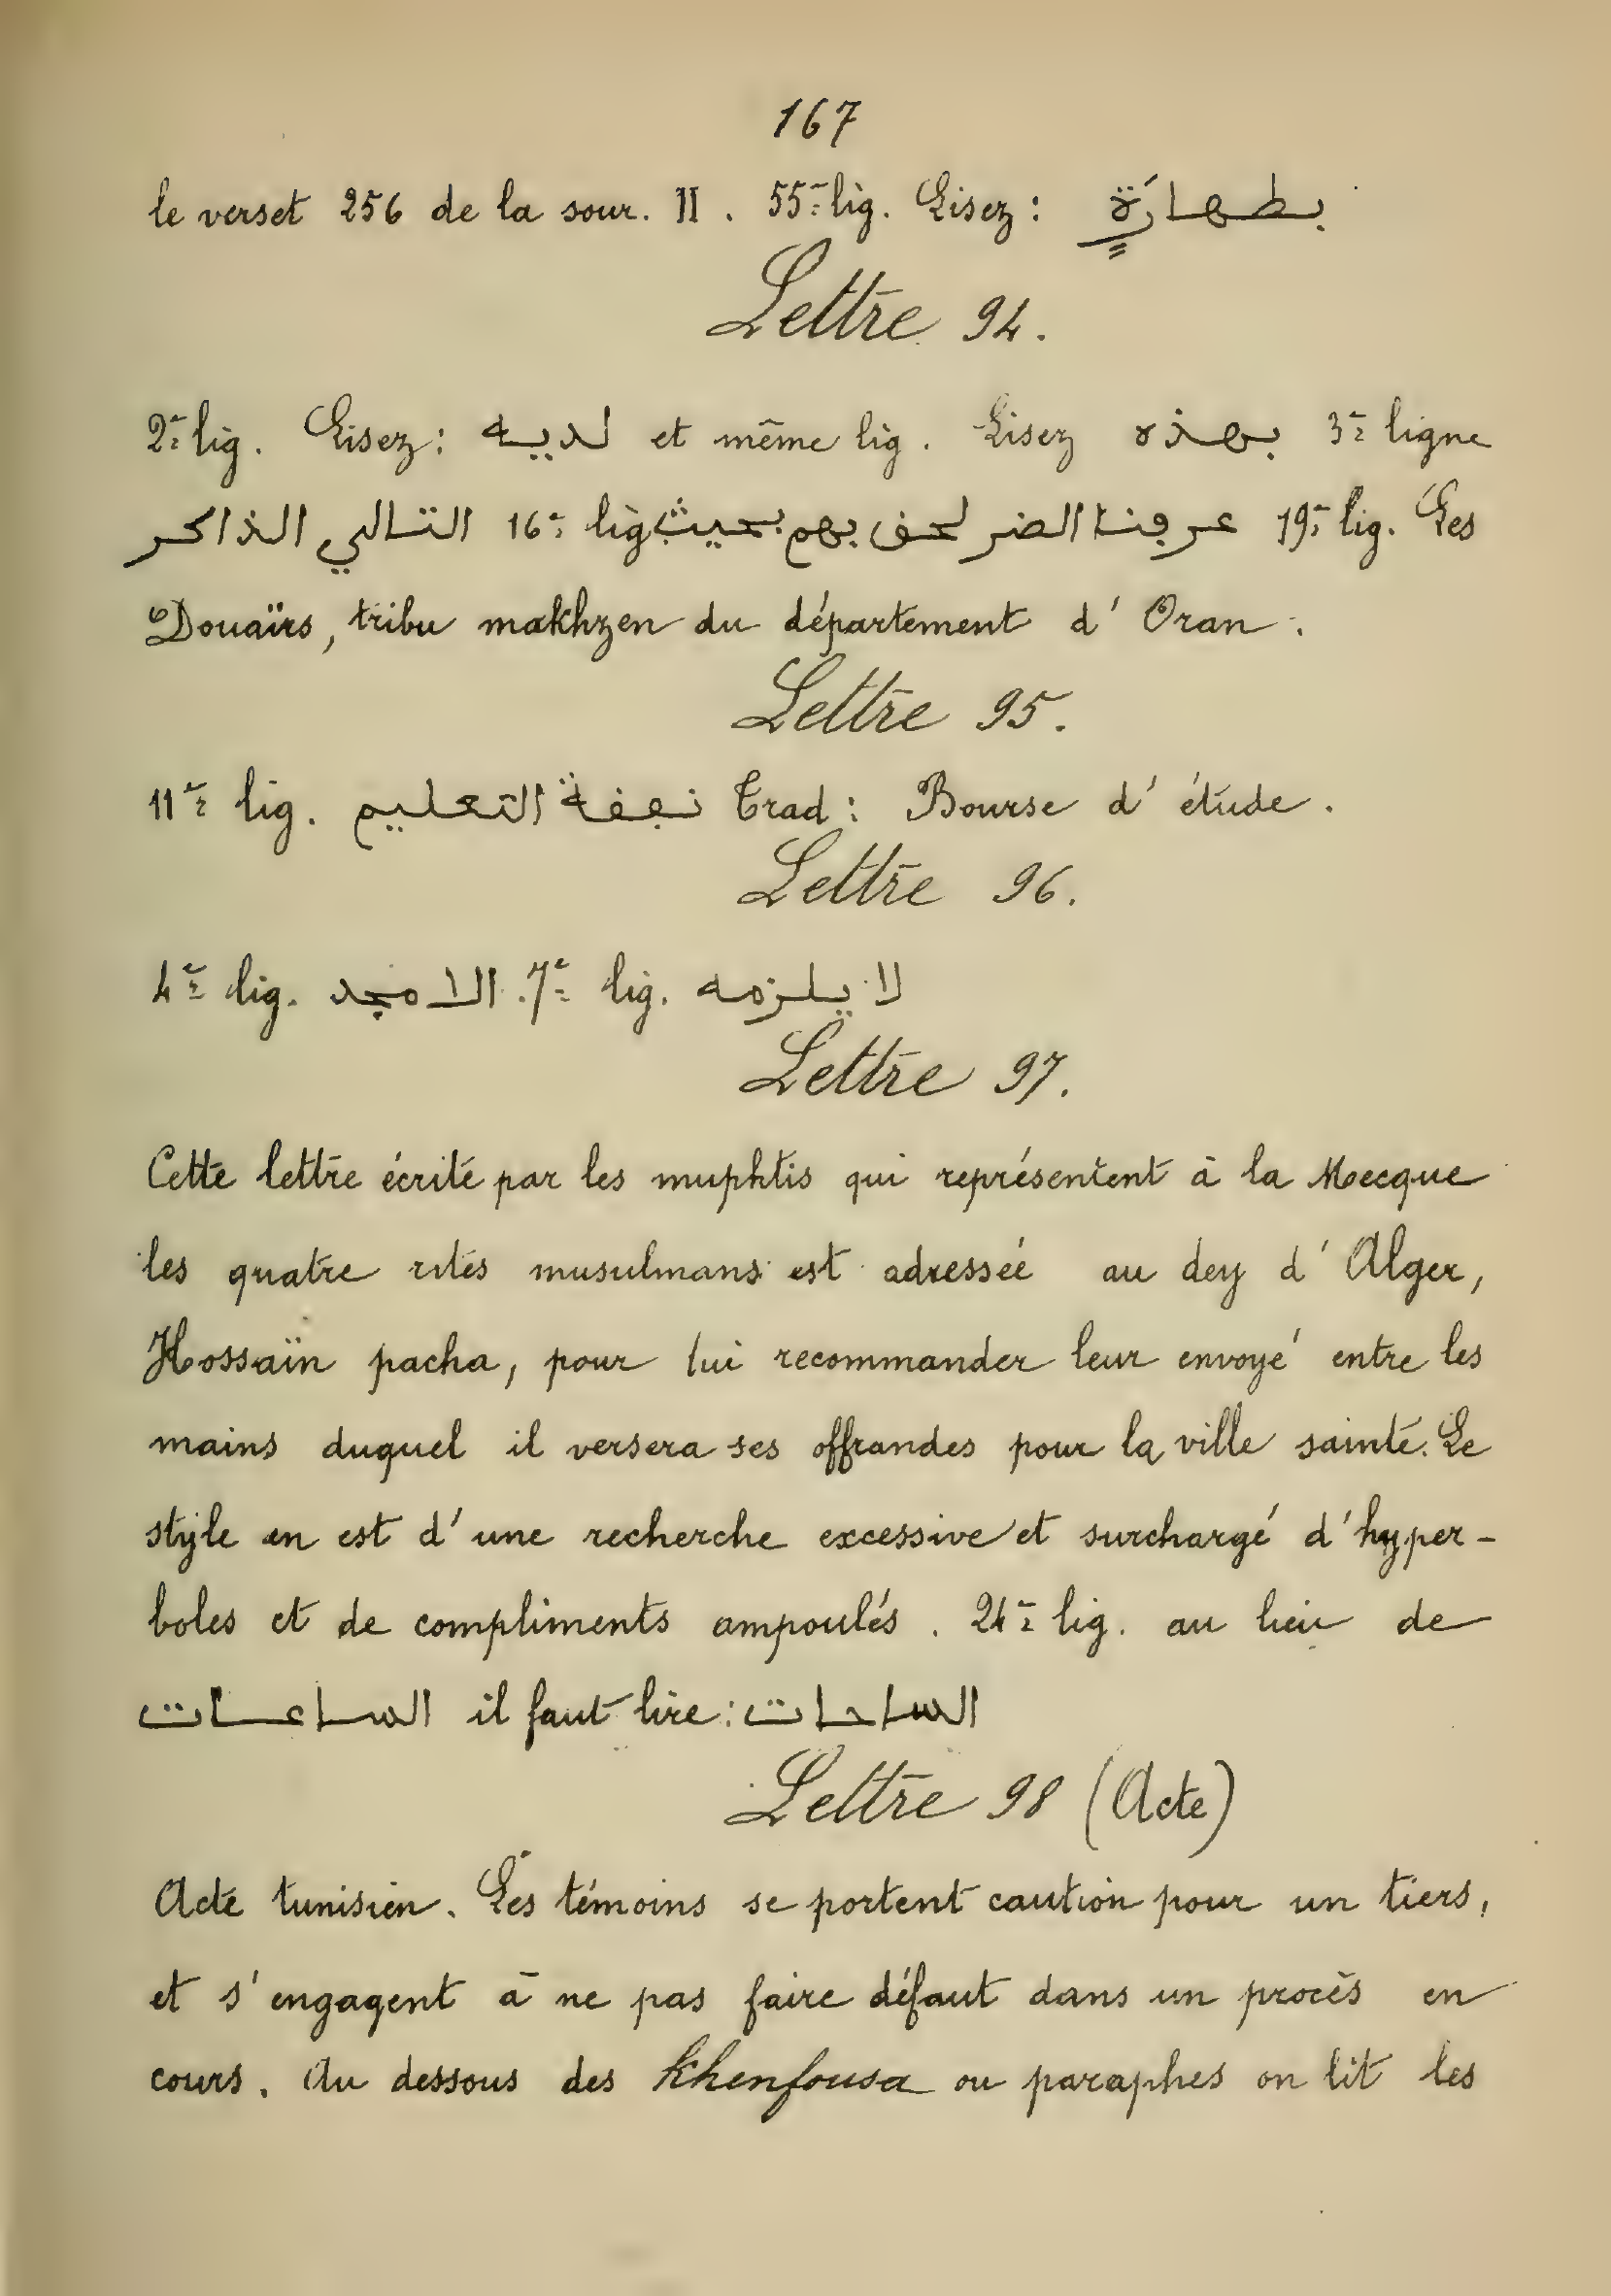 167
le verset 256 de la sour. II. 55e lig. Lisez: بطهارَةٍ
Lettre 94.
2e lig. Lisez: لديه et même lig. Lisez بهذه 3e ligne
التالي الذاكر 16e lig عرفنا الضر لحق بهم بحيث 19e lig. Les
Douaïrs, tribu makhzen du département d'Oran.
Lettre 95.
11e lig. نفقة التعليم Trad: Bourse d'étude.
Lettre 96.
4e lig. الامجد. 7e lig. لا يلزمه
Lettre 97.
Cette lettre écrite par les muphtis qui représentent à la Mecque
les quatre rites musulmans est adressée au dey d'Alger,
Hossaïn pacha, pour lui recommander leur envoyé entre les
mains duquel il versera ses offrandes pour la ville sainte. Le
style en est d'une recherche excessive et surchargé d'hyper-
boles et de compliments ampoulés. 24e lig. au lieu de
الساعات il faut lire: الساحات
Lettre 98 (Acte)
Acte tunisien. Les témoins se portent caution pour un tiers,
et s'engagent à ne pas faire défaut dans un procès en
cours. Au dessous des khenfousa ou paraphes on lit les